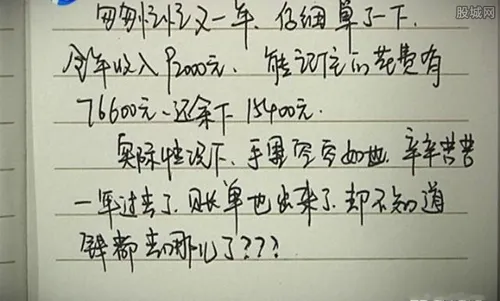 股城网
匆匆忙忙又一年. 仔细算了一下.
全年收入92000元. 能记住的花费有
76600元. 还余下 15400元.
实际情况下. 手里空空如也. 辛辛苦苦
一年过去了. 账单也出来了. 却不知道
钱都去哪儿了???